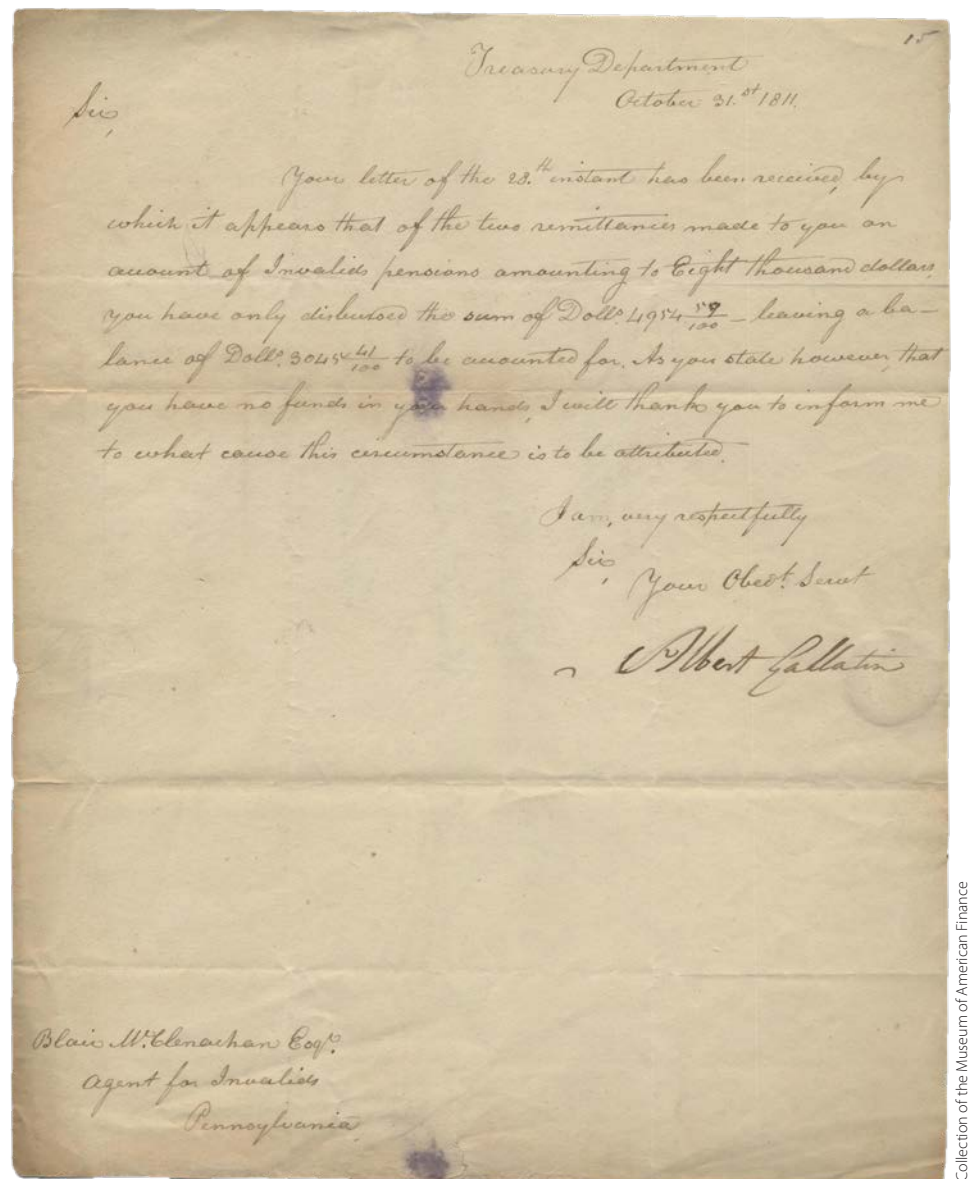 15
Treasury Department
October 31.st 1811.
Sir,
Your letter of the 28.th instant has been received, by
which it appears that of the two remittances made to you on
account of Invalids pensions amounting to Eight thousand dollars,
you have only disbursed the sum of Dolls. 4954 59/100 – leaving a ba-
lance of Dolls. 3045 41/100 to be accounted for. As you state however, that
you have no funds in your hands, I will thank you to inform me
to what cause this circumstance is to be attributed.
I am, very respectfully
Sir,
Your Obedt. Servt
Albert Gallatin
Blair McClenachan Esqr.
Agent for Invalids
Pennsylvania
Collection of the Museum of American Finance